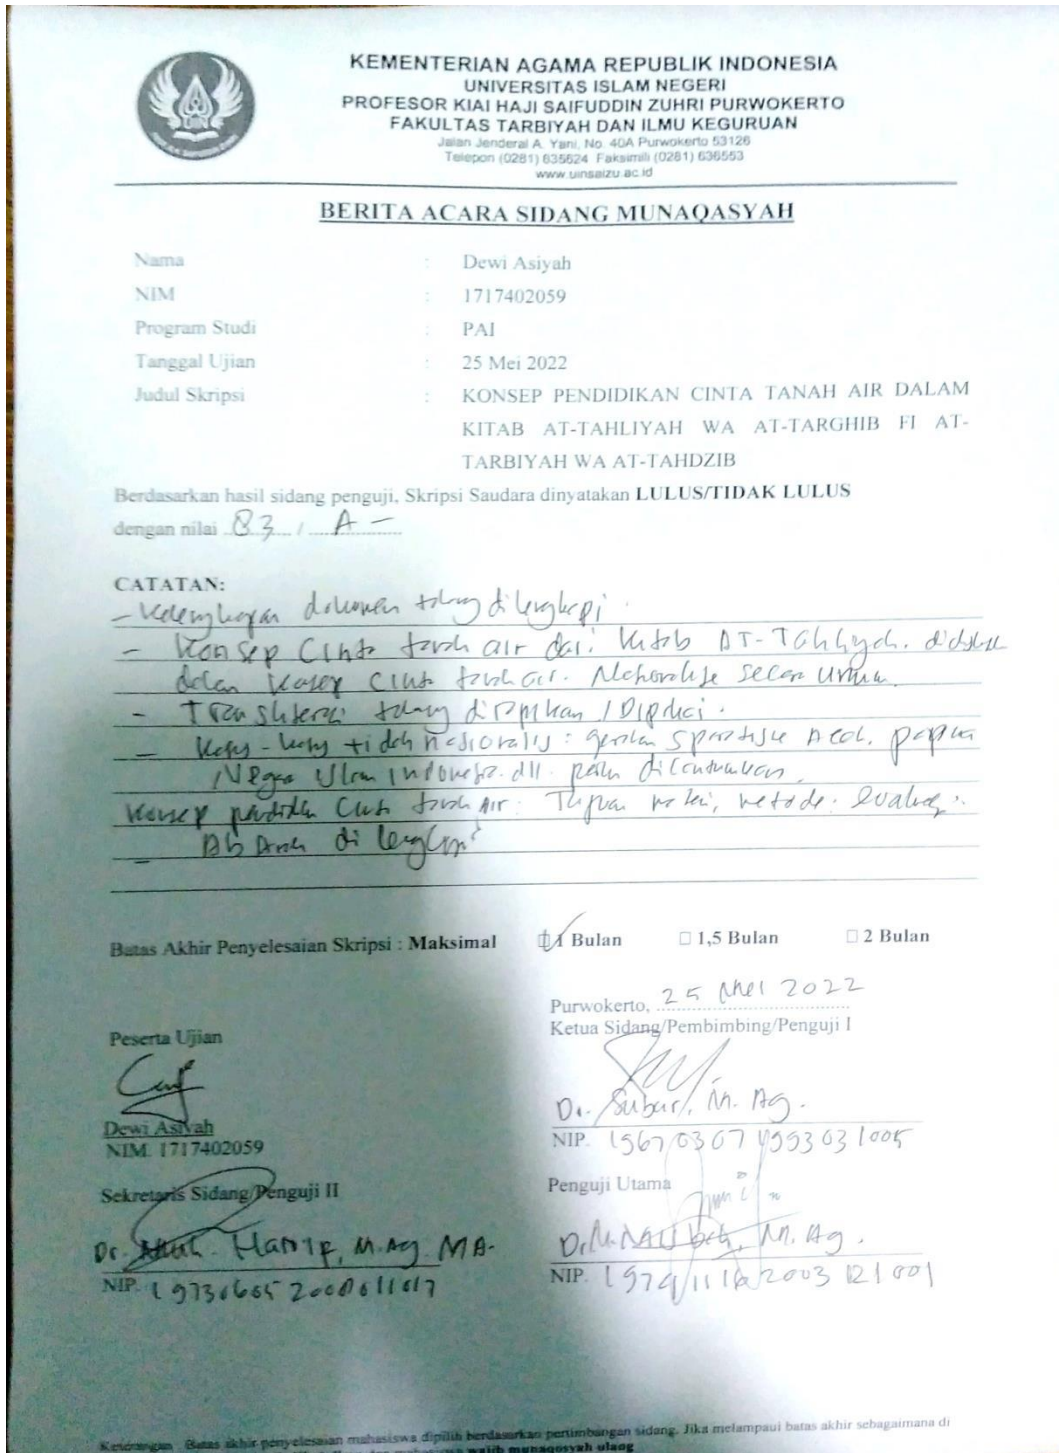 KEMENTERIAN AGAMA REPUBLIK INDONESIA
UNIVERSITAS ISLAM NEGERI
PROFESOR KIAI HAJI SAIFUDDIN ZUHRI PURWOKERTO
FAKULTAS TARBIYAH DAN ILMU KEGURUAN
Jalan Jenderal A. Yani, No. 40A Purwokerto 53126
Telepon (0281) 635624 Faksimili (0281) 636553
www.uinsaizu.ac.id
BERITA ACARA SIDANG MUNAQASYAH
Nama : Dewi Asiyah
NIM : 1717402059
Program Studi : PAI
Tanggal Ujian : 25 Mei 2022
Judul Skripsi : KONSEP PENDIDIKAN CINTA TANAH AIR DALAM
KITAB AT-TAHLIYAH WA AT-TARGHIB FI AT-
TARBIYAH WA AT-TAHDZIB
Berdasarkan hasil sidang penguji, Skripsi Saudara dinyatakan LULUS/TIDAK LULUS
dengan nilai 83 / A-
CATATAN:
- Kelengkapan dokumen tolong dilengkapi.
- Konsep Cinta tanah air dari Kitab AT-Tahliyah.
konsep Cinta tanah air. secara Umum
- Transliterasi tolong dirapikan /
- tidak nasionalis: gerakan Aceh, papua
/Negara Indonesia. dll. perlu dicantumkan.
Konsep pendidikan Cinta tanah Air: Tujuan materi, metode. evaluasi.
- di lengkapi
Batas Akhir Penyelesaian Skripsi : Maksimal □ 1 Bulan □ 1,5 Bulan □ 2 Bulan
Purwokerto, 25 Mei 2022
Ketua Sidang/Pembimbing/Penguji I
Peserta Ujian
Dr. Subur, M. Ag.
Dewi Asiyah
NIP. 196703071993031005
NIM. 1717402059
Sekretaris Sidang/Penguji II
Penguji Utama
Dr. Hanif, M.Ag. MA.
Dr. M. M. Ag.
NIP. 19730605 200801 1 017
NIP. 19741116 2003 121 001
Keterangan : Batas akhir penyelesaian mahasiswa dipilih berdasarkan pertimbangan sidang. Jika melampaui batas akhir sebagaimana di
wajib munaqosyah ulang